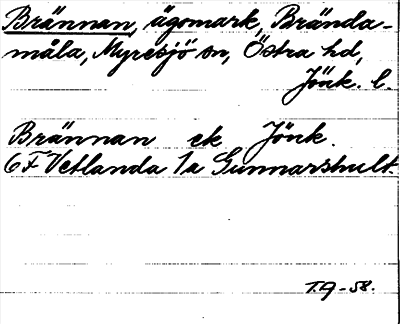 Brännan, ägomark, Brända-
måla, Myresjö sn, Östra hd,
Jönk. l.
Brännan ek Jönk.
6F Vetlanda 1a Gunnarshult.
T.G-58.